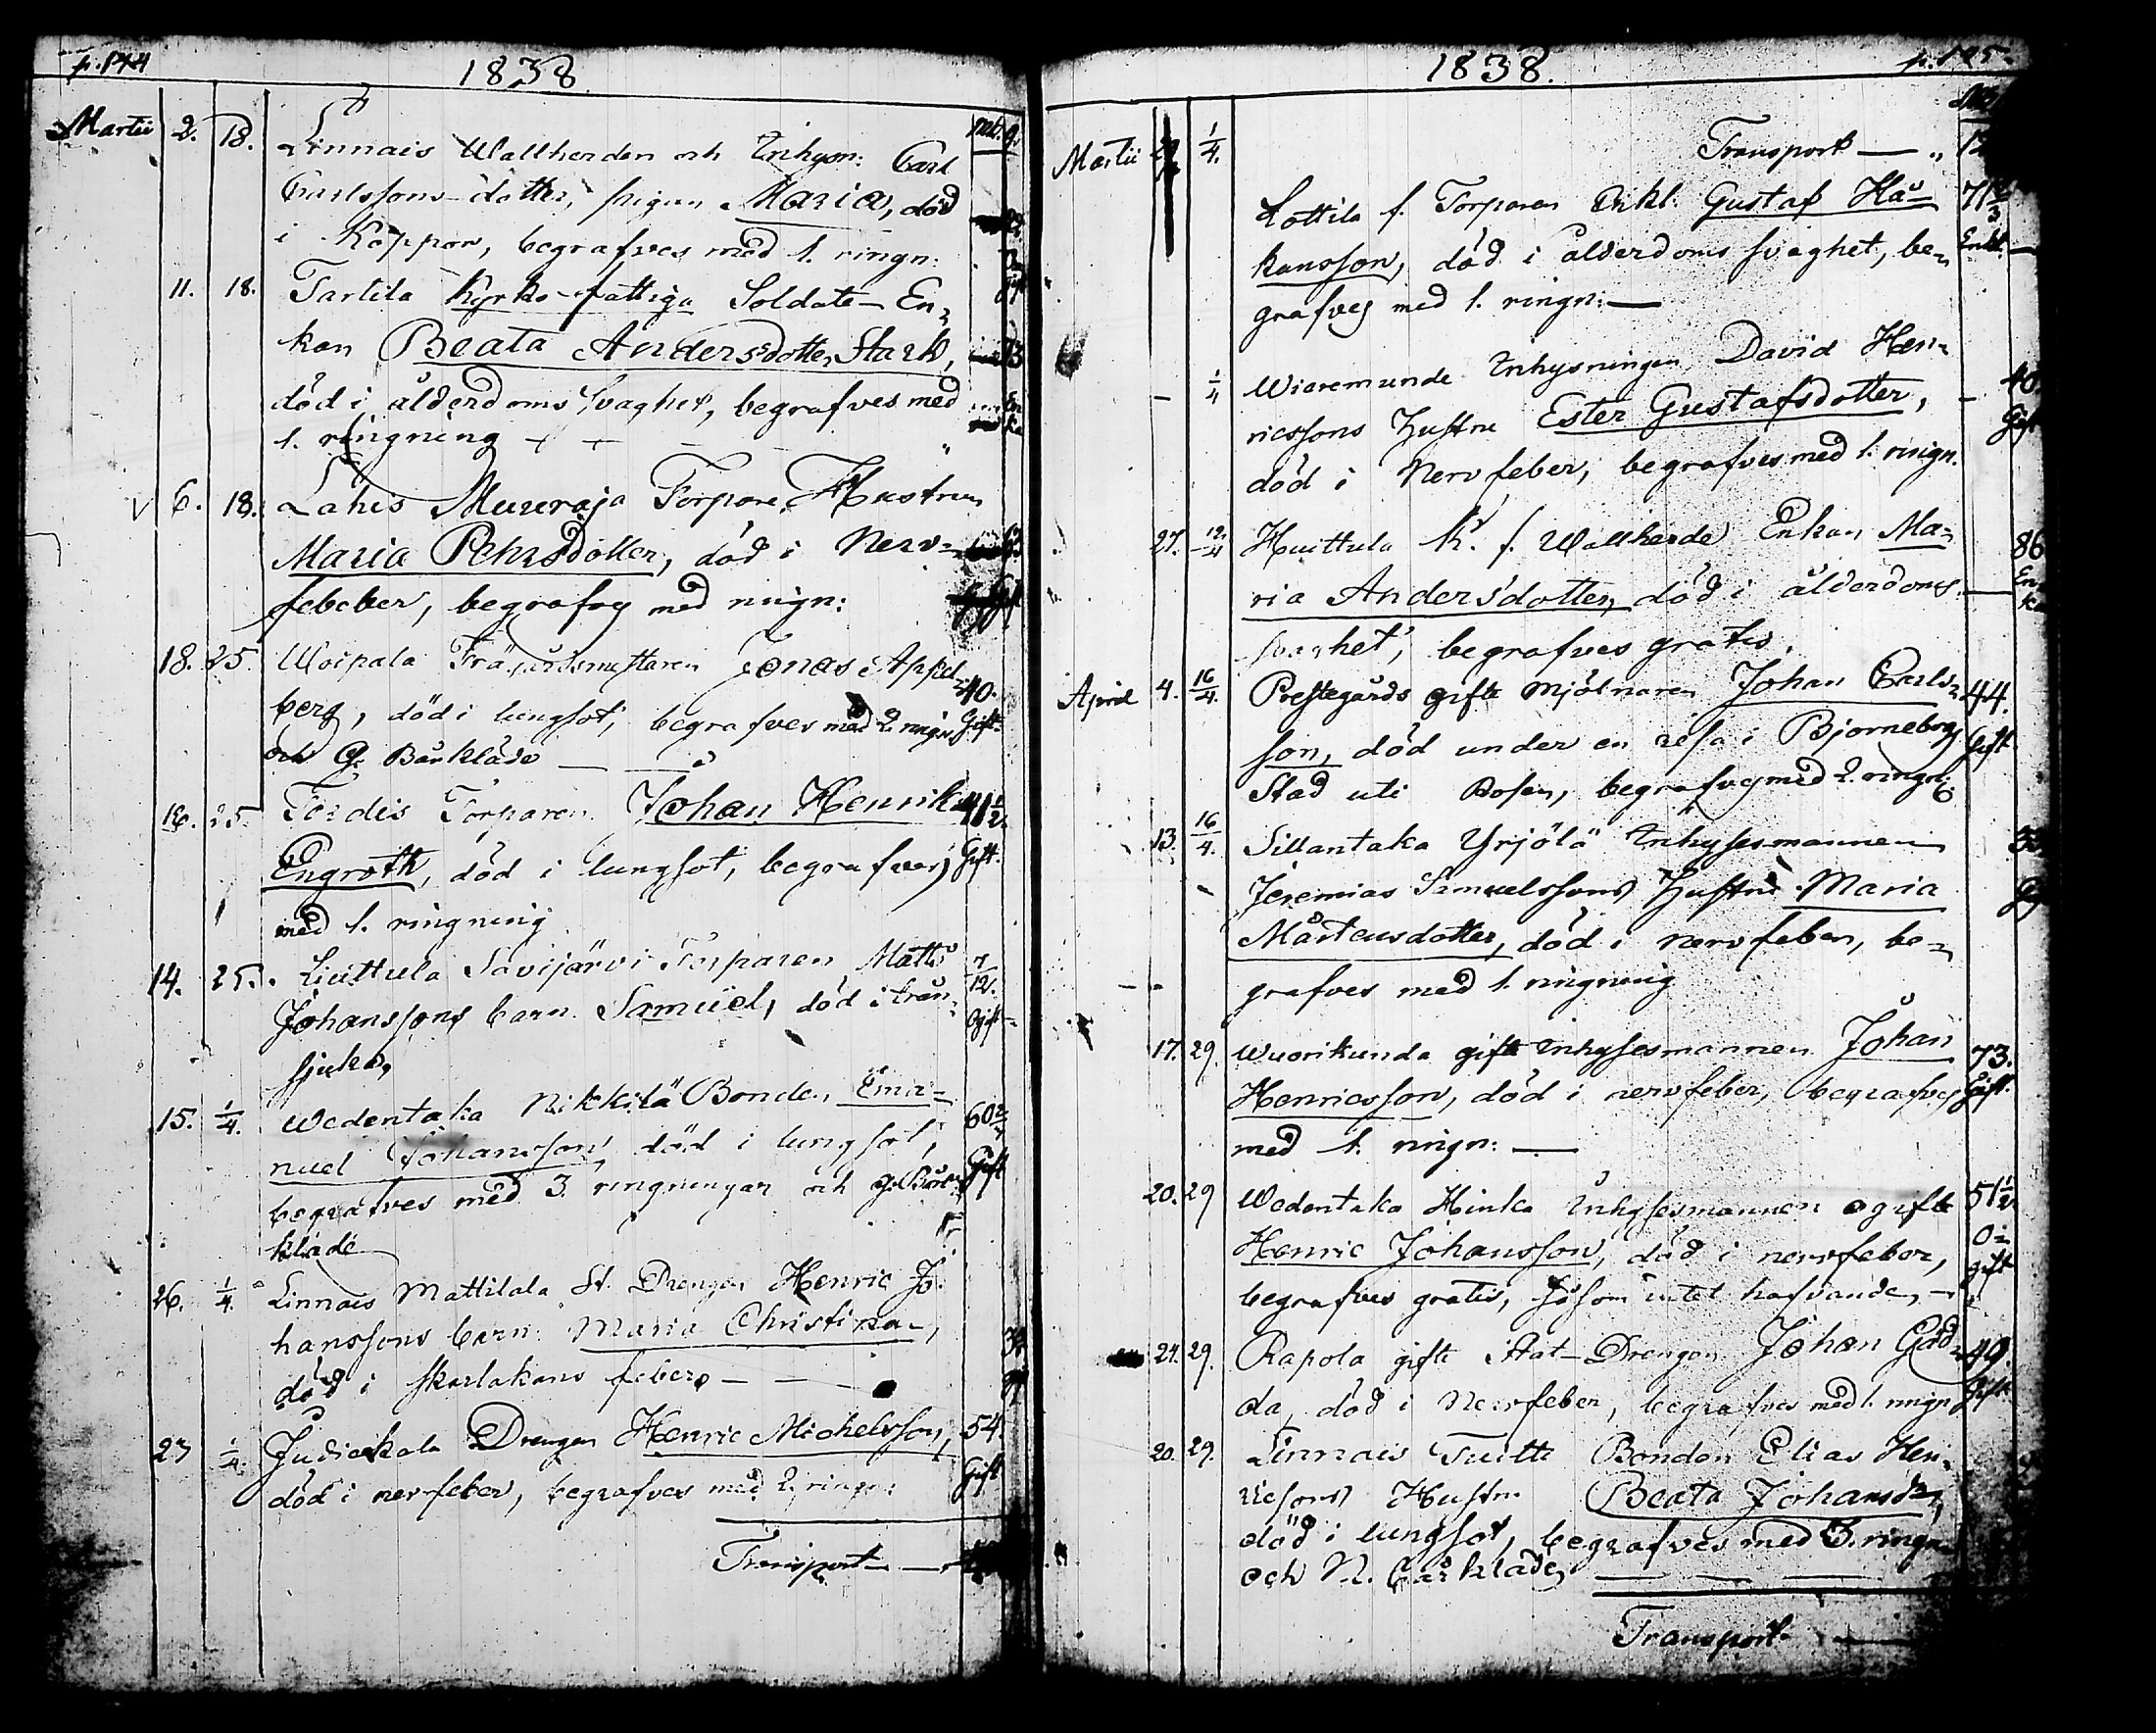 p. 144
1838
Martii 2. 18. Linnais Wallherden och Inhysn: Carl
Carlssons dotter, pigan Maria, död
i Koppor, begrafves med 1. ringn:
11. 18. Tarlila Kyrko-fattiga Soldate-En-
kan Beata Andersdotter Stark, 73
död i ålderdoms svaghet, begrafves med
1. ringning
6. 18. Lahis Muuraja Torpare Hustrun
Maria Pehrsdotter, död i Nerv-
febeber, begrafvs med ringn:
18. 25. Woipala Jonas Appel- 40.
berg, död i lungsot, begrafves med 2. ringn. Gift
och G. Bårkläde
16. 25. Tordis Torparen Johan Henrik 41 1/2
Engroth, död i lungsot, begrafves Gift.
med 1. ringning
14. 25. Liuttula Savijärvi Torparen Matts 7/12.
Johanssons barn Samuel, död i trån- Ogift
sjuka,
15. 1/4. Wedentaka Nikkilä Bonden Ema- 60
nuel Johansson, död i lungsot, Gift
begrafves med 3. ringningar och G. Bår-
kläde
26. 1/4. Linnais Mattilala St. Drengen Henric Jo-
hanssons barn Maria Christina,
död i skarlakans feber
23 1/4. Judickala Drengen Henric Michelsson, 54.
död i nervfeber, begrafves med 2. ringn: Gift
Transport
1838.
p. 145.
Transport
Martii 1/4. Lottila f. Torparen Enkl. Gustaf Hå- 71
kansson, död i ålderdoms svaghet, be- Enkl.
grafves med 1. ringn:
1/4 Wiaremunde Inhysningen David Hen-
ricssons Hustru Ester Gustafsdotter, 40
död i Nervfeber, begrafves med 1. ringn. Gift
27. 12/4 Huittula K. f. Wallherde Enkan Ma- 86
ria Andersdotter, död i ålderdoms En-
svaghet, begrafves gratis.
April 4. 16/4. Prestegårds gifte Mjölnaren Johan Carls- 44.
son, död under en resa i Björneborg Gift
Stad uti Rosen, begrafves med 2. ringn:
13. 16/4. Sillantaka Yrjölä Inhysesmannen
Jeremias Samuelssons Hustru Maria
Mårtensdotter, död i nervfeber, be-
grafves med 1. ringning
17. 29. Wuorikunda gifte Inhysesmannen Johan 73.
Henricsson, död i nervfeber, begrafves Gift.
med 1. ringn:
20. 29 Wedentaka Hinka Inhysesmannen ogifte 51 1/2
Henric Johansson, död i nervfeber, O-
begrafves gratis, såsom intet hafvande, gift
24. 29. Rapola gifte Stat-Drengen Johan Gad- 49.
da, död i Nervfeber, begrafves med 1. ringn Gift
20. 29. Linnais Tuitti Bonden Elias Hen-
ricsons Hustru Beata Johansdr,
död i lungsot, begrafves med 3. ringn
och N. Bårkläde,
Transport